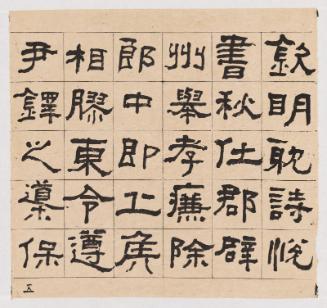 欽明耽詩悅
書秋仕郡辟
州舉孝廉除
郎中即丘侯
相膠東令遵
尹鐸之導保
五